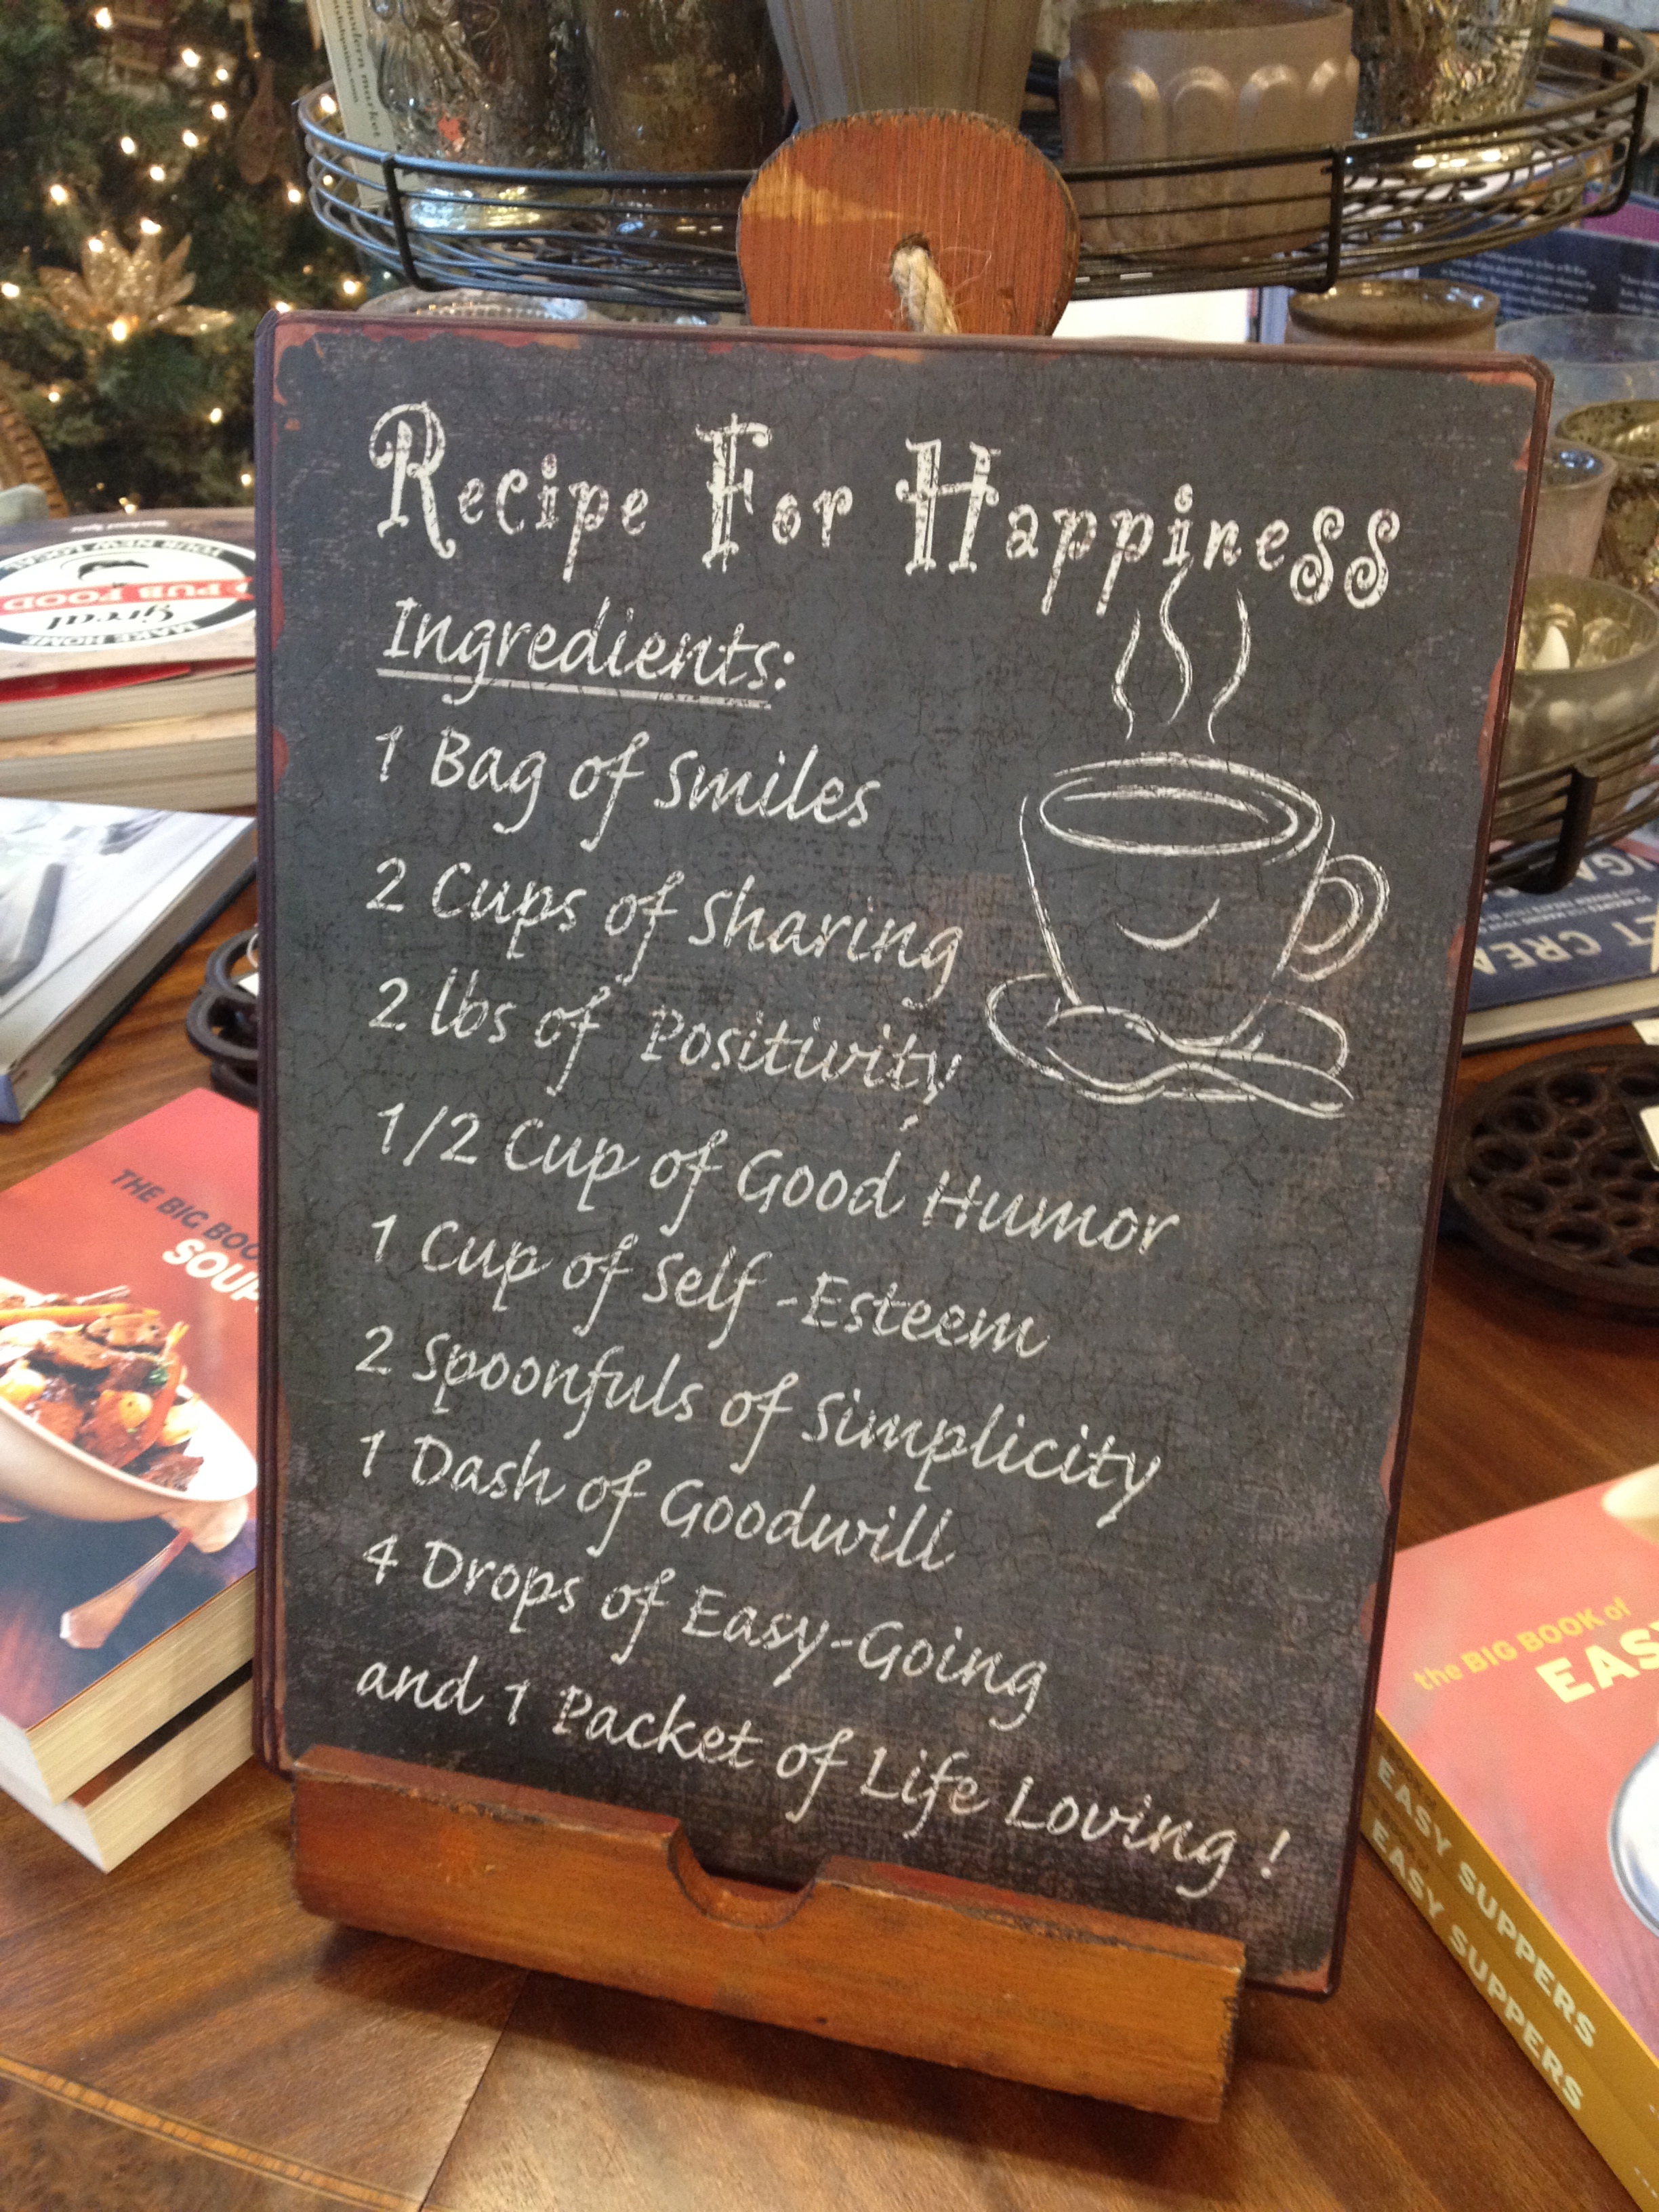 Recipe For Happiness
Ingredients:
1 Bag of Smiles
2 Cups of Sharing
2 lbs of Positivity
1/2 Cup of Good Humor
1 Cup of Self-Esteem
2 Spoonfuls of Simplicity
1 Dash of Goodwill
4 Drops of Easy-Going
and 1 Packet of Life Loving!
modern market
MAKE HOME
great
PUB FOOD
YOUR NEW LOCAL
THE BIG BOO
SOUP
the BIG BOOK of
EASY
EASY SUPPERS
EASY SUPPERS
ET CREA